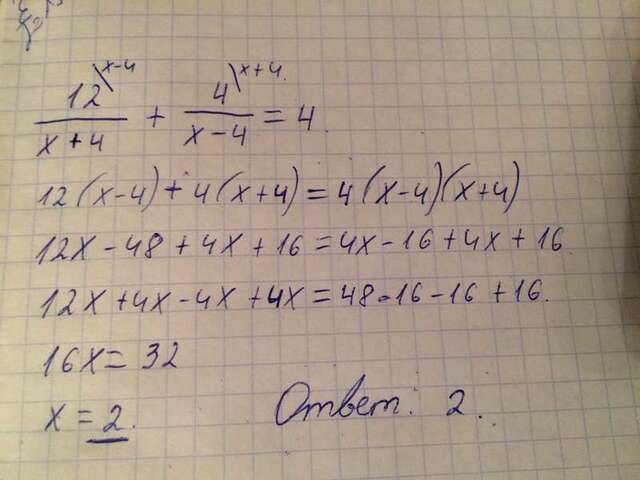 12^(x-4)/(x+4) + 4^(x+4)/(x-4) = 4.
12(x-4)+4(x+4)=4(x-4)(x+4)
12x-48+4x+16=4x-16+4x+16
12x+4x-4x+4x=48-16-16+16.
16x=32
x=2.
Ответ: 2.